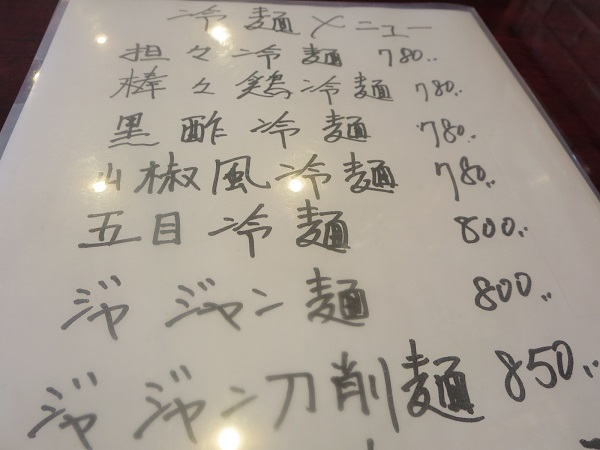 冷麺メニュー
担々冷麺 780..
棒々鶏冷麺 780..
黒酢冷麺 780..
山椒風冷麺 780..
五目冷麺 800..
ジャジャン麺 800..
ジャジャン刀削麺 850..